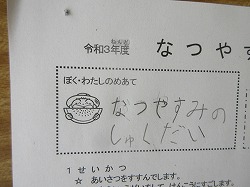 令和3年度 なつやす
ぼく・わたしのめあて
なつやすみの
しゅくだい
1 せいかつ
☆ あいさつをすすんでします。